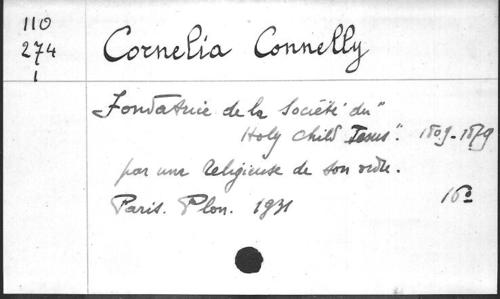 110
274
1
Cornelia Connelly
Fondatrice de la Société du "
Holy Child Jesus". 1809-1879
par une religieuse de son ordre.
Paris. Plon. 1931 16º